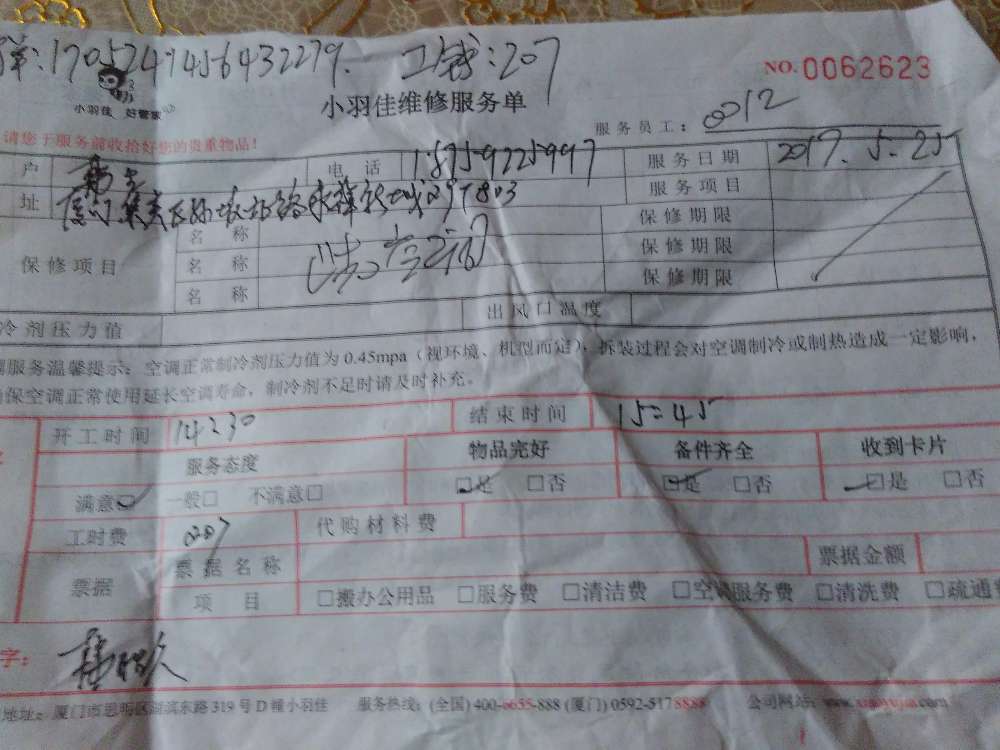 单:170524914564322279. 工钱:207
NO.0062623
小羽佳 好管家
小羽佳维修服务单
请您于服务前收拾好您的贵重物品!
服务员工: 0012
户 电话 18759225997 服务日期 2017.5.25
址 服务项目
保修项目 名称 保修期限
名称 保修期限
名称 保修期限
冷剂压力值 出风口温度
服务温馨提示:空调正常制冷剂压力值为0.45mpa(视环境、机型而定),拆装过程会对空调制冷或制热造成一定影响,
保空调正常使用延长空调寿命,制冷剂不足时请及时补充。
开工时间 14:30 结束时间 15:45
服务态度 物品完好 备件齐全 收到卡片
满意□ 一般□ 不满意□ □是 □否 □是 □否 □是 □否
工时费 207 代购材料费
票据 票据名称 票据金额
项目 □搬办公用品 □服务费 □清洁费 □空调服务费 □清洗费 □疏通
字:
地址:厦门市思明区湖滨东路319号D幢小羽佳 服务热线:(全国)400-6655-888 (厦门)0592-5178888 公司网站:www.xiaoyujia.com